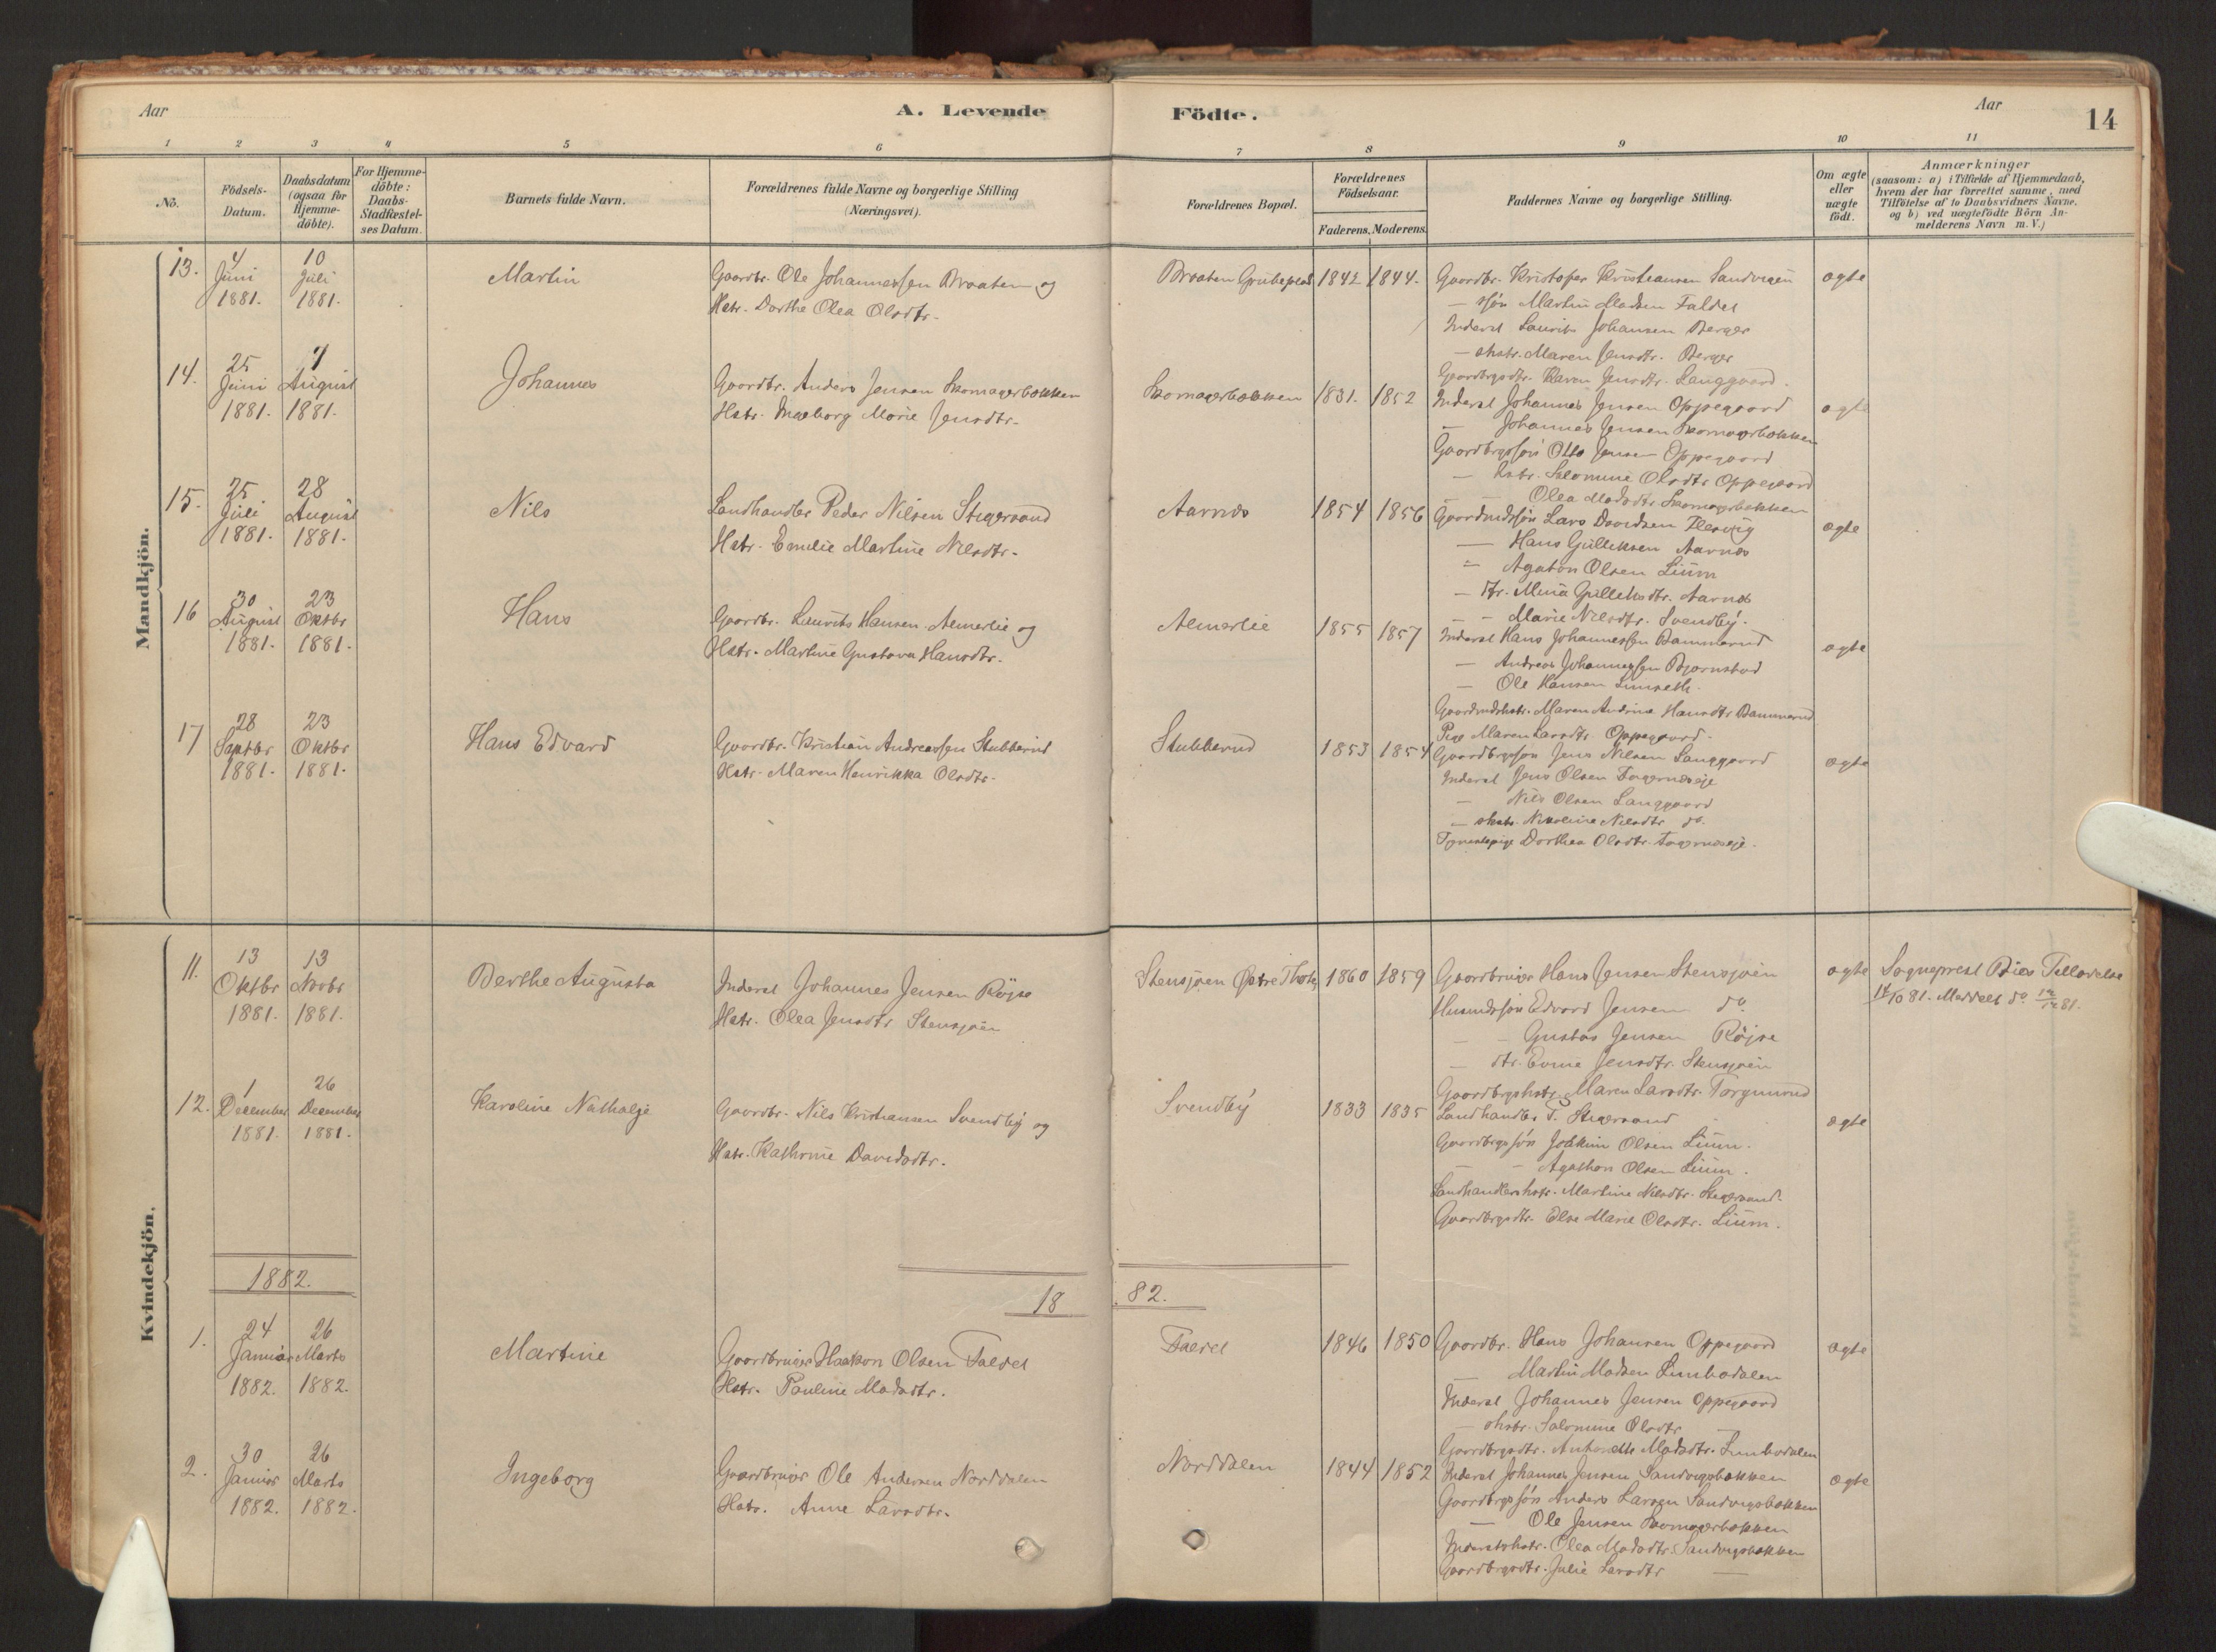 Aar
A. Levende
Födte.
Aar
14
1 2 3 4 5 6 7 8 9 10 11
No.
Födsels-Datum.
Daabsdatum (ogsaa for Hjemme-döbte).
For Hjemme-döbte: Daabs-Stadfæstel-ses Datum.
Barnets fulde Navn.
Forældrenes fulde Navne og borgerlige Stilling (Næringsvei).
Forældrenes Bopæl.
Forældrenes Födselsaar.
Faderens. Moderens.
Faddernes Navne og borgerlige Stilling.
Om ægte eller uægte födt.
Anmærkninger
(saasom: a) i Tilfælde af Hjemmedaab,
hvem der har forrettet samme, med
Tilföielse af to Daabsvidners Navne,
og b) ved uægtefödte Börn An-
melderens Navn m. V.)
Mandkjön.
13. 4 Juni 1881. 10 Juli 1881.
Martin
Gaardbr. Ole Johannessen Braaten og
Hstr. Dorthe Olea Olsdtr.
Braaten Grubeplads 1842 1844.
Gaardbr. Kristofer Kristiansen Sandvigen
— ssøn Martin Madsen Faldet
Inderst Laurits Johansen Berger
— shstr. Maren Jensdtr. Berger
Gaardbrgsdtr. Karen Jensdtr. Langgaard.
ægte
14. 25 Juni 1881. 7 August 1881.
Johannes
Gaardbr. Anders Jensen Skomagerbakken
Hstr. Ingeborg Marie Jensdtr.
Skomagerbakken 1831. 1852
Inderst Johannes Jensen Oppegaard
— Johannes Jensen Skomagerbakken
Gaardbrgssøn Otto Jensen Oppegaard
— hstr. Salomine Olsdtr Oppegaard
— — Olea Madsdtr Skomagerbakken
ægte
15. 25 Juli 1881. 28 August 1881.
Nils
Landhandler Peder Nilsen Stigersand
Hstr. Emilie Martine Nilsdtr.
Aarnes 1854 1856
Gaardmdssøn Lars Davidsen
— Hans Gulliksen Aarnes
— Agaton Olsen Lium
— dtr. Mina Gulliksdtr. Aarnes
— — Marie Nilsdtr. Svendby.
ægte
16 30 August 1881. 23 Oktbr 1881.
Hans
Gaardbr. Laurits Hansen Almerlie og
Hstr. Martine Gustava Hansdtr.
Almerlie 1855 1857
Inderst Hans Johannessen Dammerud
— Andreas Johannessen Bjørnstad
— Ole Hansen
Gaardmdshstr. Maren Andrine Hansdtr Dammerud
Pige Maren Larsdtr. Oppegaard.
ægte
17 28 Septbr 1881. 23 Oktbr 1881.
Hans Edvard
Gaardbr. Kristian Andreassen Stubberud
Hstr. Maren Henrikka Olsdtr.
Stubberud 1853 1854
Gaardbrgssøn Jens Nilsen Langgaard
Inderst Jens Olsen Fagernæseje
— Nils Olsen Langgaard
— shstr. Nikoline Nilsdtr do.
Tjenestepige Dorthea Olsdtr. Fagernæseje.
ægte
Kvindekjön.
11. 13 Oktbr 1881. 13 Novbr 1881.
Berthe Augusta
Inderst Johannes Jensen Röjse
Hstr. Olea Jensdtr Stensjøen
Stensjøen Østre Thoten 1860 1859
Gaardbruger Hans Jensen Stensjøen
Husmdssøn Edvard Jensen do
— — Gustav Jensen Röjse
— dtr. Jensdtr. Stensjøen
Gaardbrgshstr. Maren Larsdtr. Torgunrud
ægte
Sogneprest Tilladelse
81. Meddelt do 81.
12. 1 December 1881. 26 December 1881.
Karoline Nathalje
Gaardbr. Nils Kristiansen Svendby og
Hstr. Kathrine Davidsdtr.
Svendby 1833 1835
Landhandler P. Stigersand
Gaardbrgssøn Joakim Olsen Lium.
— — Agathon Olsen Lium.
Landhandlerhstr. Martine Nilsdtr. Stigersand.
Gaardbrgsdtr. Else Marie Olsdtr. Lium.
ægte
1882.
18 82.
1. 24 Januar 1882. 26 Marts 1882.
Martine
Gaardbruger Haakon Olsen Faldet
Hstr. Pauline Madsdtr.
Faldet 1846 1850
Gaardbr. Hans Johansen Oppegaard
— Martin Madsen Limbodalen
Inderst Johannes Jensen Oppegaard
— shstr. Salomine Olsdtr
Gaardbrgsdtr. Antonette Madsdtr. Limbodalen
ægte
2. 30 Januar 1882. 26 Marts 1882.
Ingeborg
Gaardbruger Ole Andersen Norddalen
Hstr. Anne Larsdtr.
Norddalen 1844 1852
Inderst Johannes Jensen Sandvigsbakken
Gaardbrgssøn Anders Larsen Sandvigsbakken
— Ole Jensen Skomagerbakken
Inderstshstr. Olea Madsdtr. Sandvigsbakken
Gaardbrgsdtr. Julie Larsdtr —
ægte